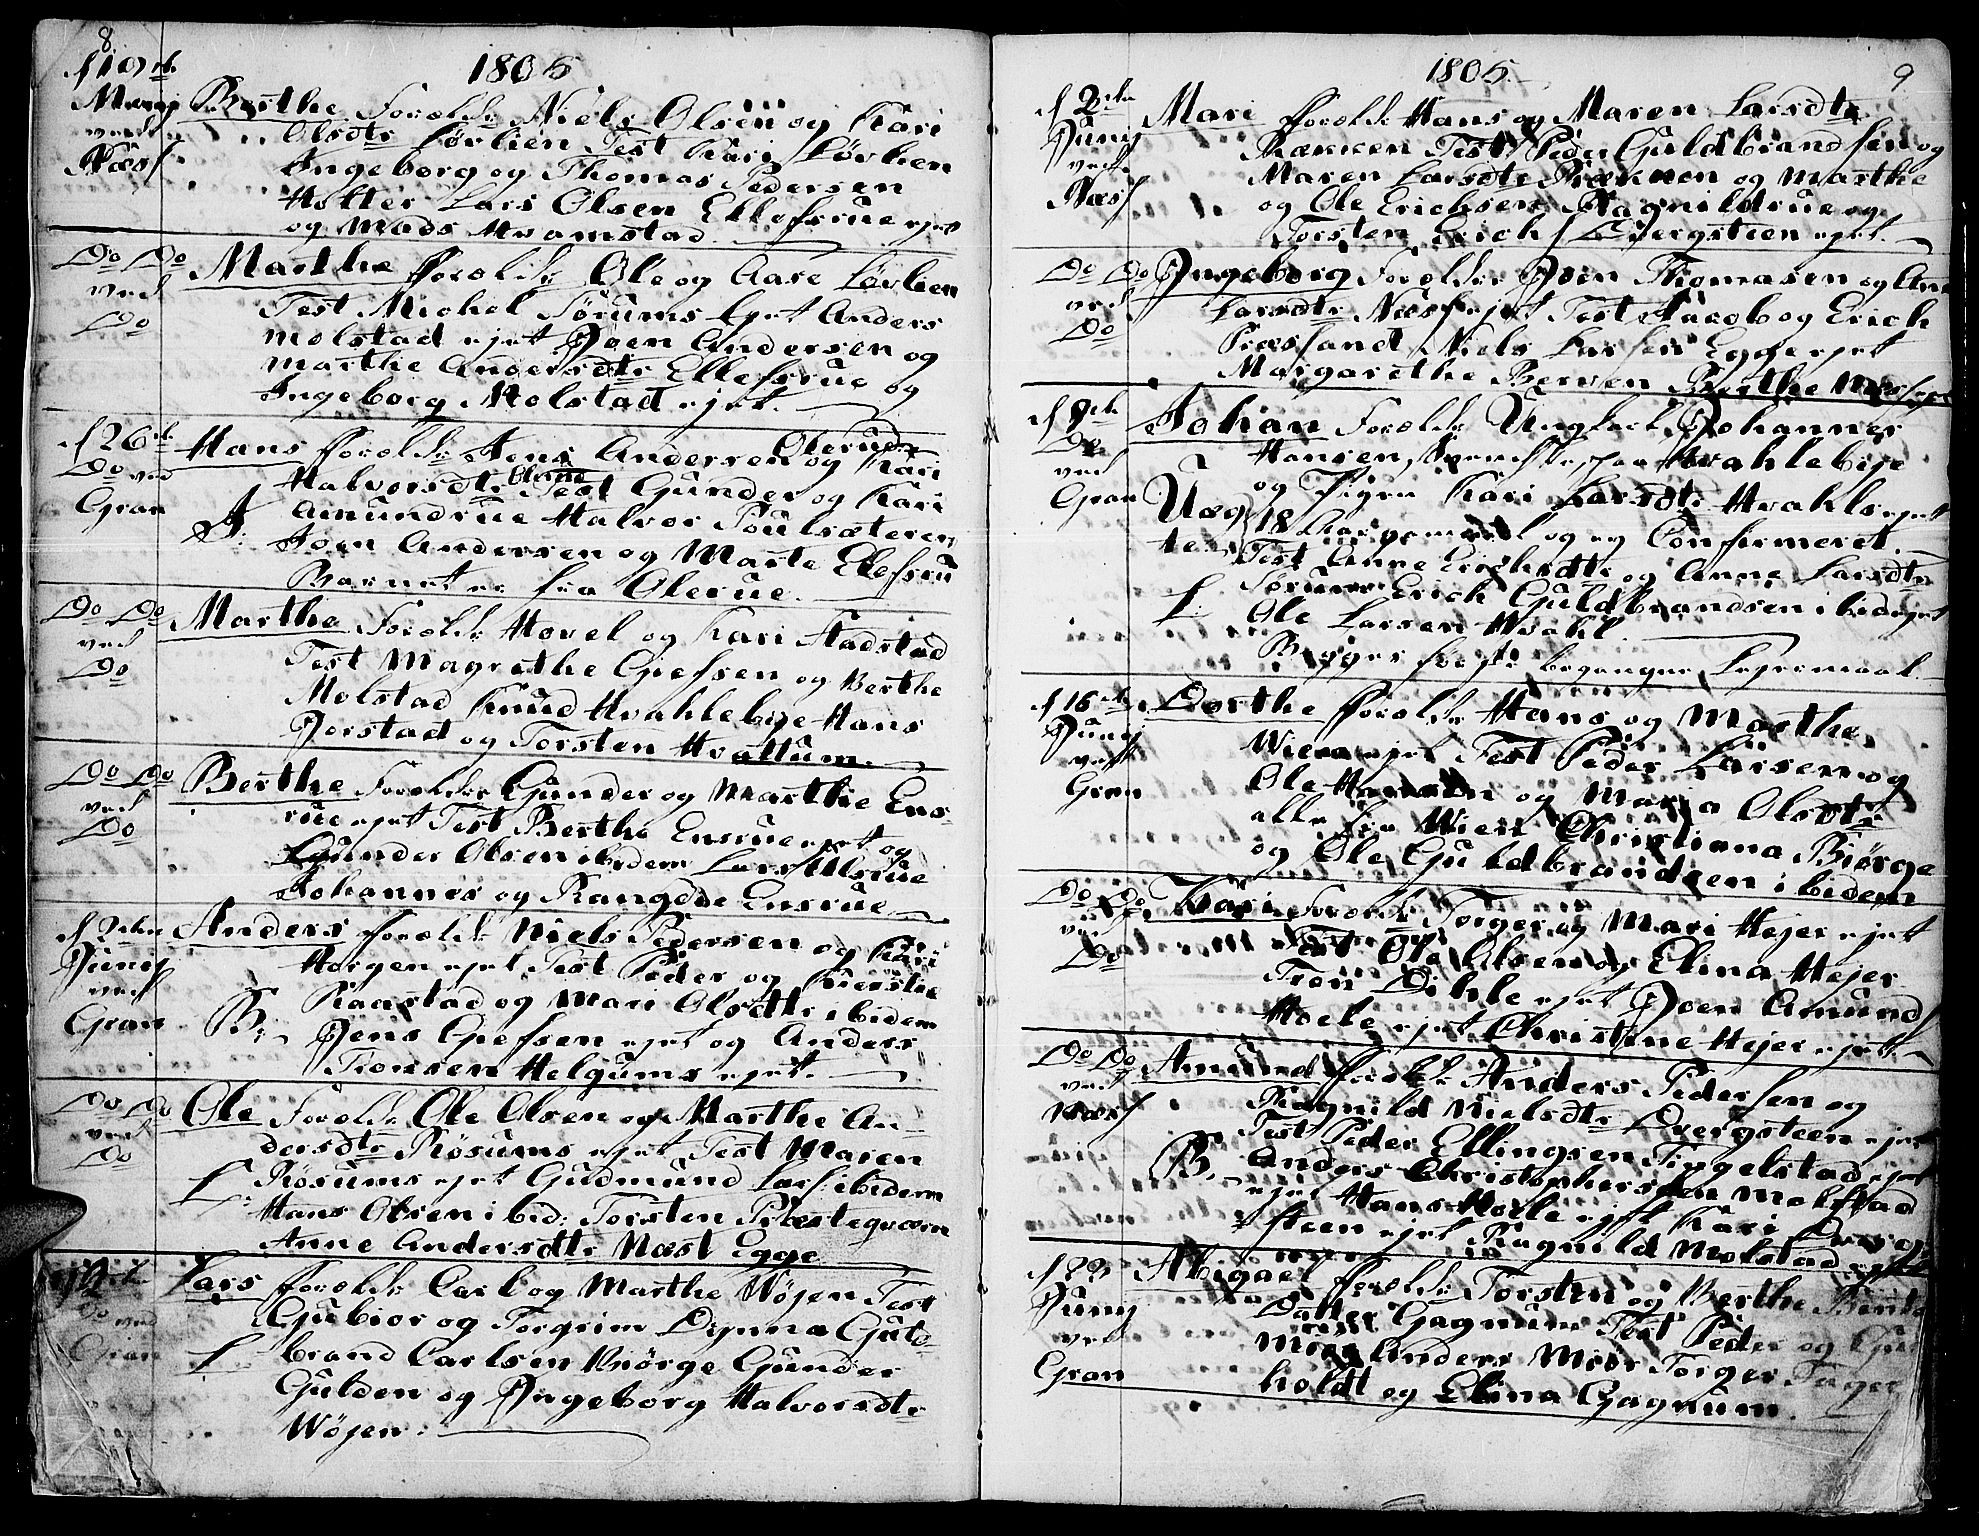 8.
1805
d 19de
Maij
ved
Næss
Berthe Foreldr: Niels Olsen og Kari
Olsdtr Løvlien Test Kari Løvlien
Ingeborg og Thomas Pedersen
Hotter Lars Olsen Ellefsrue ejet
og Mads Hvamstad
Do Do
ved
Do
Marthe Foreldr: Ole og Aase Løvlien
Test Michel Sørums ejet Anders
Molstad ejet Joen Andersen og
Marthe Andersdtr Ellefsrue og
Ingeborg Molstad ejet.
d 26de
Do ved
Gran
Hans Foreldr: Jens Andersen og Kari
Halvorsdtr Olerud Test Gunder og Kari
Amundrue Halvor Poulsæteren
Joen Andersen og Marte Elefsru
Barnet er fra Olerue.
Do Do
ved
Do
Marthe Foreldr: Hovel og Kari Stadstad
Test Magrethe Gjefsen og Berthe
Molstad Knud Hvahlebye Hans
Jorstad og Torsten Hvattum.
Do Do
ved
Do
Berthe Foreldr: Gunder og Marthe Ens-
rue ejet Test Berthe Ensrue ejet og
Gunder Olsen ibidem Lars Ulsrue
Johannes og Rangdde Ensrue
d 2den
Junij
ved
Gran
Anders Foreldr: Niels Pedersen og Kari
Horgen ejet Test Peder og Kierstie
Raastad og Mari Olsdtr ibidem
B: Jens Gjefsen ejet og Anders
Tronsen Helgums ejet.
Do Do
ved
Do
Ole Foreldr: Ole Olsen og Marthe An-
dersdtr Røsums ejet Test Maren
L: Røsums ejet Gudmund Lars: ibidem
Hans Olsen ibid: Torsten Præstegværn
Anne Andersdtr Næst Egge
Do ved
Gran
Lars Foreldr: Carl og Marthe Wøjen Test
Gubiør og Torgrim Dynna Guld-
L brand Carlsen Biørge Gunder
Gulden og Ingeborg Halvorsdtr
Wøjen:
1805.
9
d 2den
Junij
ved
Næss
Mari Foreldr: Hans og Maren Larsdtr
Rækken Test Peder Guldbrandsen og
Maren Larsdtr Rækken og Marthe
og Ole Erichsen Ragnildrue og
Torsten Erichs Dvergsteen ejet.
Do Do
ved
Do
Ingeborg Foreldr: Joen Thomasen og Ane
Larsdtr Næss ejet Test Jacob og Erich
Præssand Niels Larsen Egge ejet
Margarethe Berven Berthe Næss ejet
d 9de
Do
ved
Gran
Johan Foreldr: Ungkarl Johannes
Hansen Hvahlebye
og Pigen Kari Larsdtr Hvahls ejet
Uæg 18 Aar gammel og ey Confirmeret.
te: Test Anne Erichsdtr og Anne Larsdtr
Sørum Erich Guldbrandsen ibid ejet
L: Ole Larsen Hvahl
Begges første begangne Lejermaal
d 16de
Junij
ved
Gran
Dorthe Foreldr: Hans og Marthe
Wien ejet Test Peder Larsen og
Ole Hansen og Maria Olsdtr
alle fra Wien Christiana Biørge
og Ole Guldbrandsen ibidem
Do Do
ved
Do
Kari Foreldr: Torger og Mari Hejer ejet
Test Ole Olsen og Elina Hejer
Tron Dihle ejet Joen Amunds
Hoele ejet Christine Hejer ejet.
Do Do
ved
Næss
Amund Foreldr: Anders Pedersen og
Ragnild Nielsdtr Dvergsteen ejet
Test Peder Ellingsen Tingelstad ejet
B. Anders Christophersen Molstad
ejet Hans Hoele ejet Kari Dverg-
steen ejet Ragnild Molstad ejet
d 23
Junij
ved
Gran
Abigael Foreldr: Torsten og Berthe
Datter Gagnum Test Peder og
Moer Anders Moer Torger
holdt og Elina Gagnum.